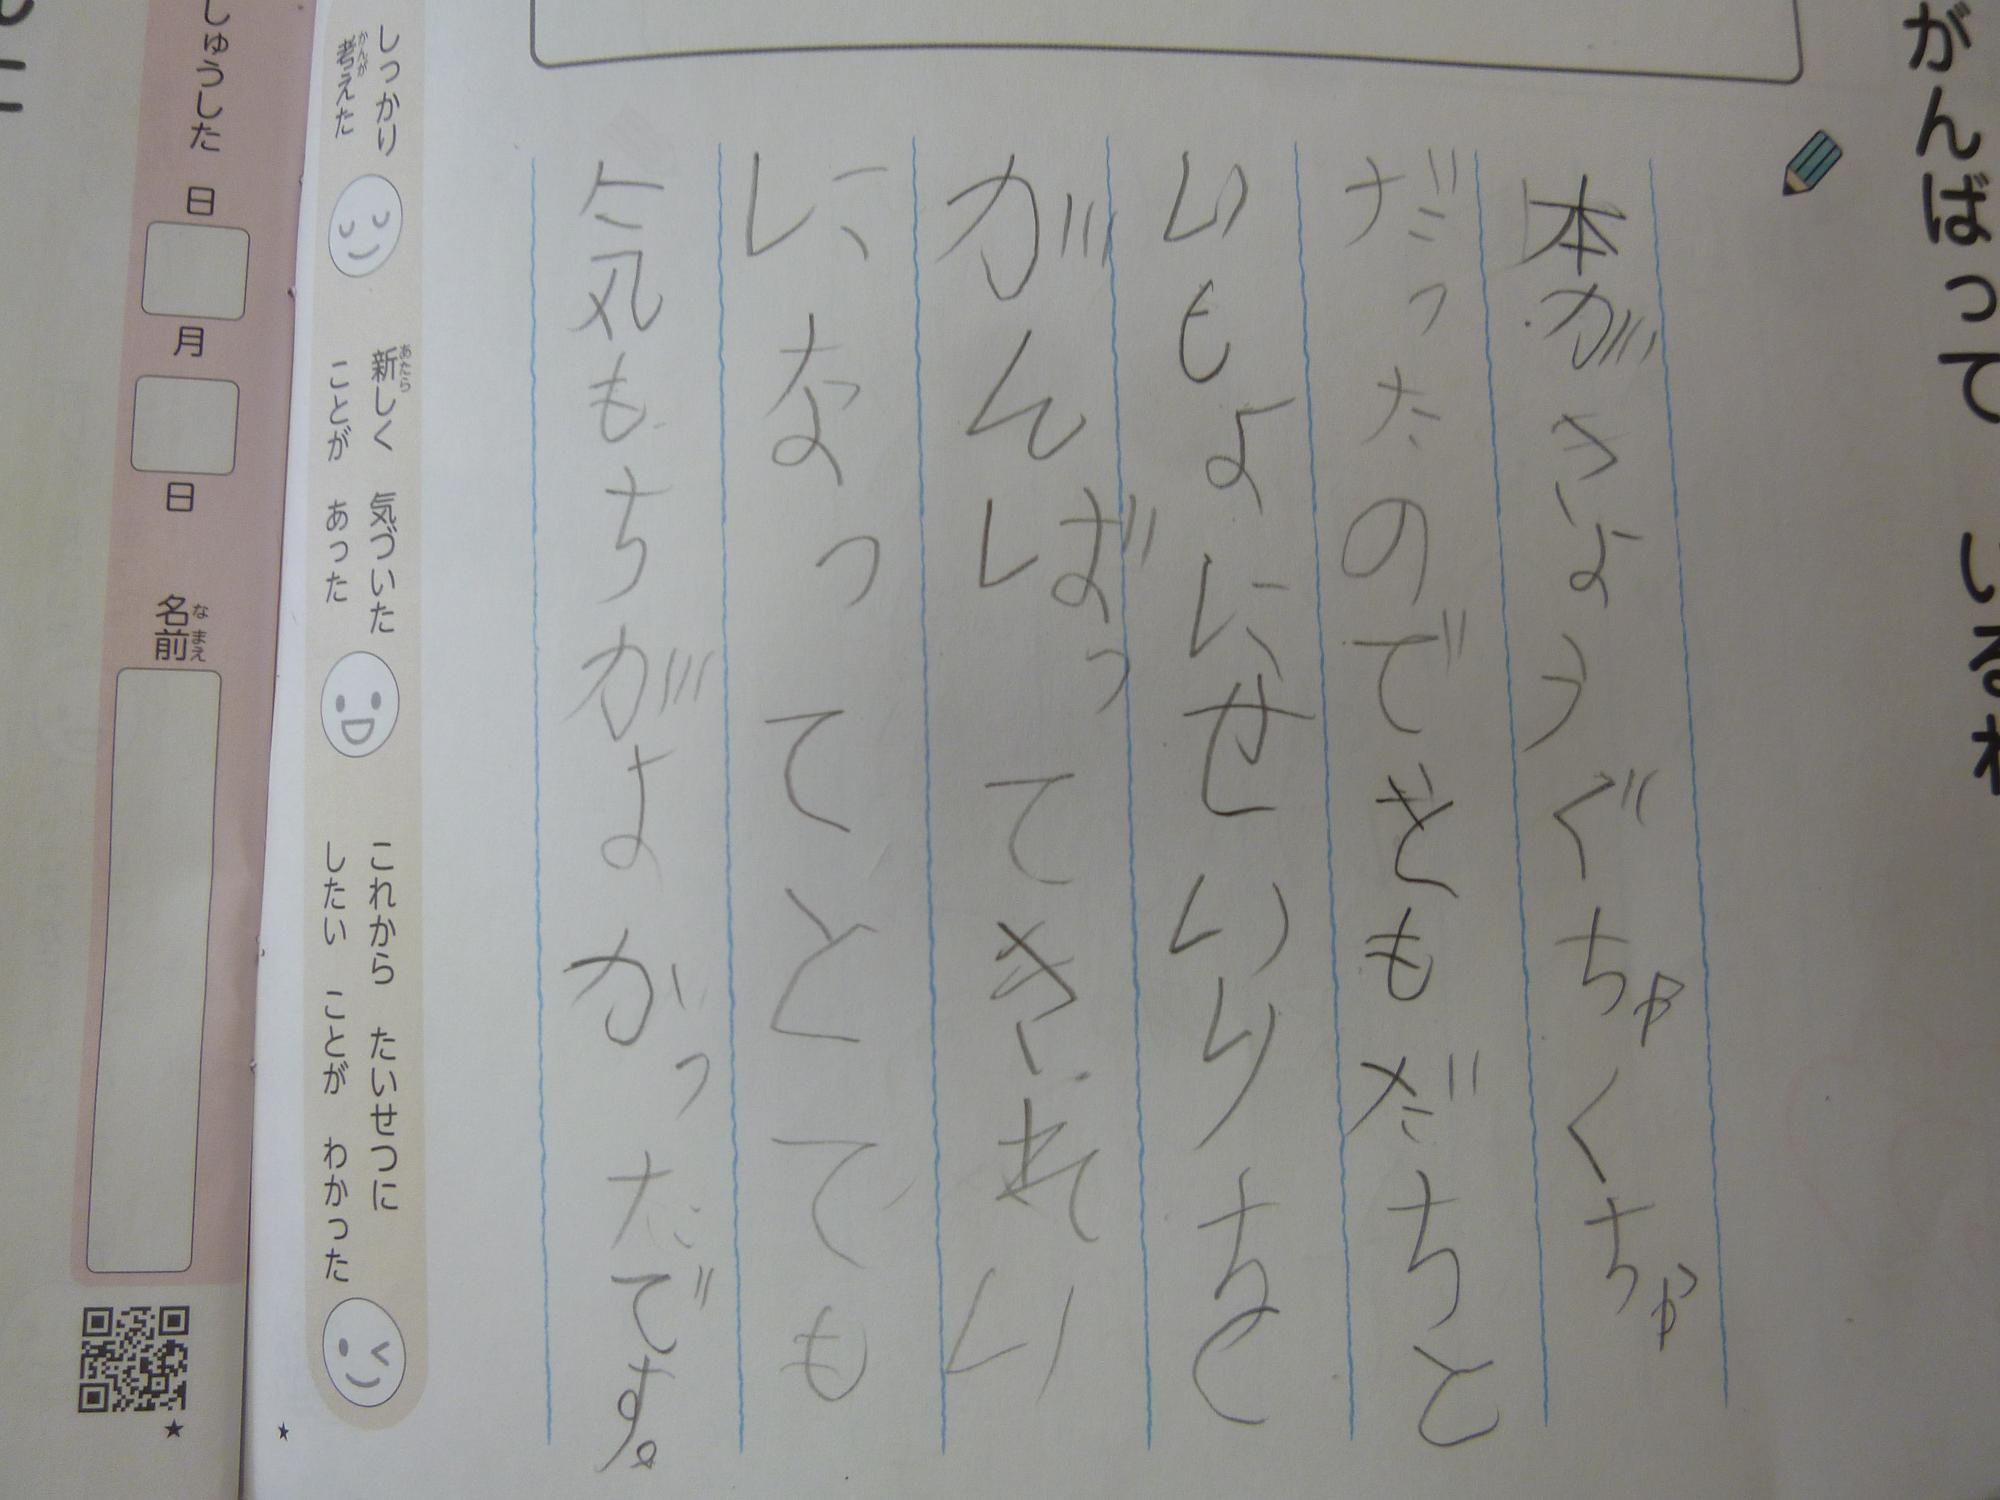 がんばって いるね
本がきょうぐちゃくちゃ
だったのできともだちと
いもよにせいりちを
がんばってきれい
になってとても
気もちがよかったです。
しっかり
考えた
かんが
新しく 気づいた
あたら
ことが あった
これから たいせつに
したい ことが わかった
しゅうした 日
月
日
名前
なまえ